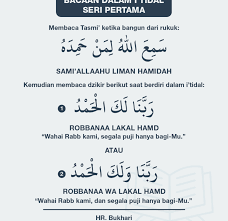 BACAAN DALAM I'TIDAL
SERI PERTAMA
Membaca Tasmi' ketika bangun dari rukuk:
سَمِعَ اللهُ لِمَنْ حَمِدَهُ
SAMI'ALLAAHU LIMAN HAMIDAH
Kemudian membaca dzikir berikut saat berdiri dalam i'tidal:
1 رَبَّنَا لَكَ الْحَمْدُ
ROBBANAA LAKAL HAMD
"Wahai Rabb kami, segala puji hanya bagi-Mu."
ATAU
2 رَبَّنَا وَلَكَ الْحَمْدُ
ROBBANAA WA LAKAL HAMD
"Wahai Rabb kami, dan segala puji hanya bagi-Mu."
HR. Bukhari